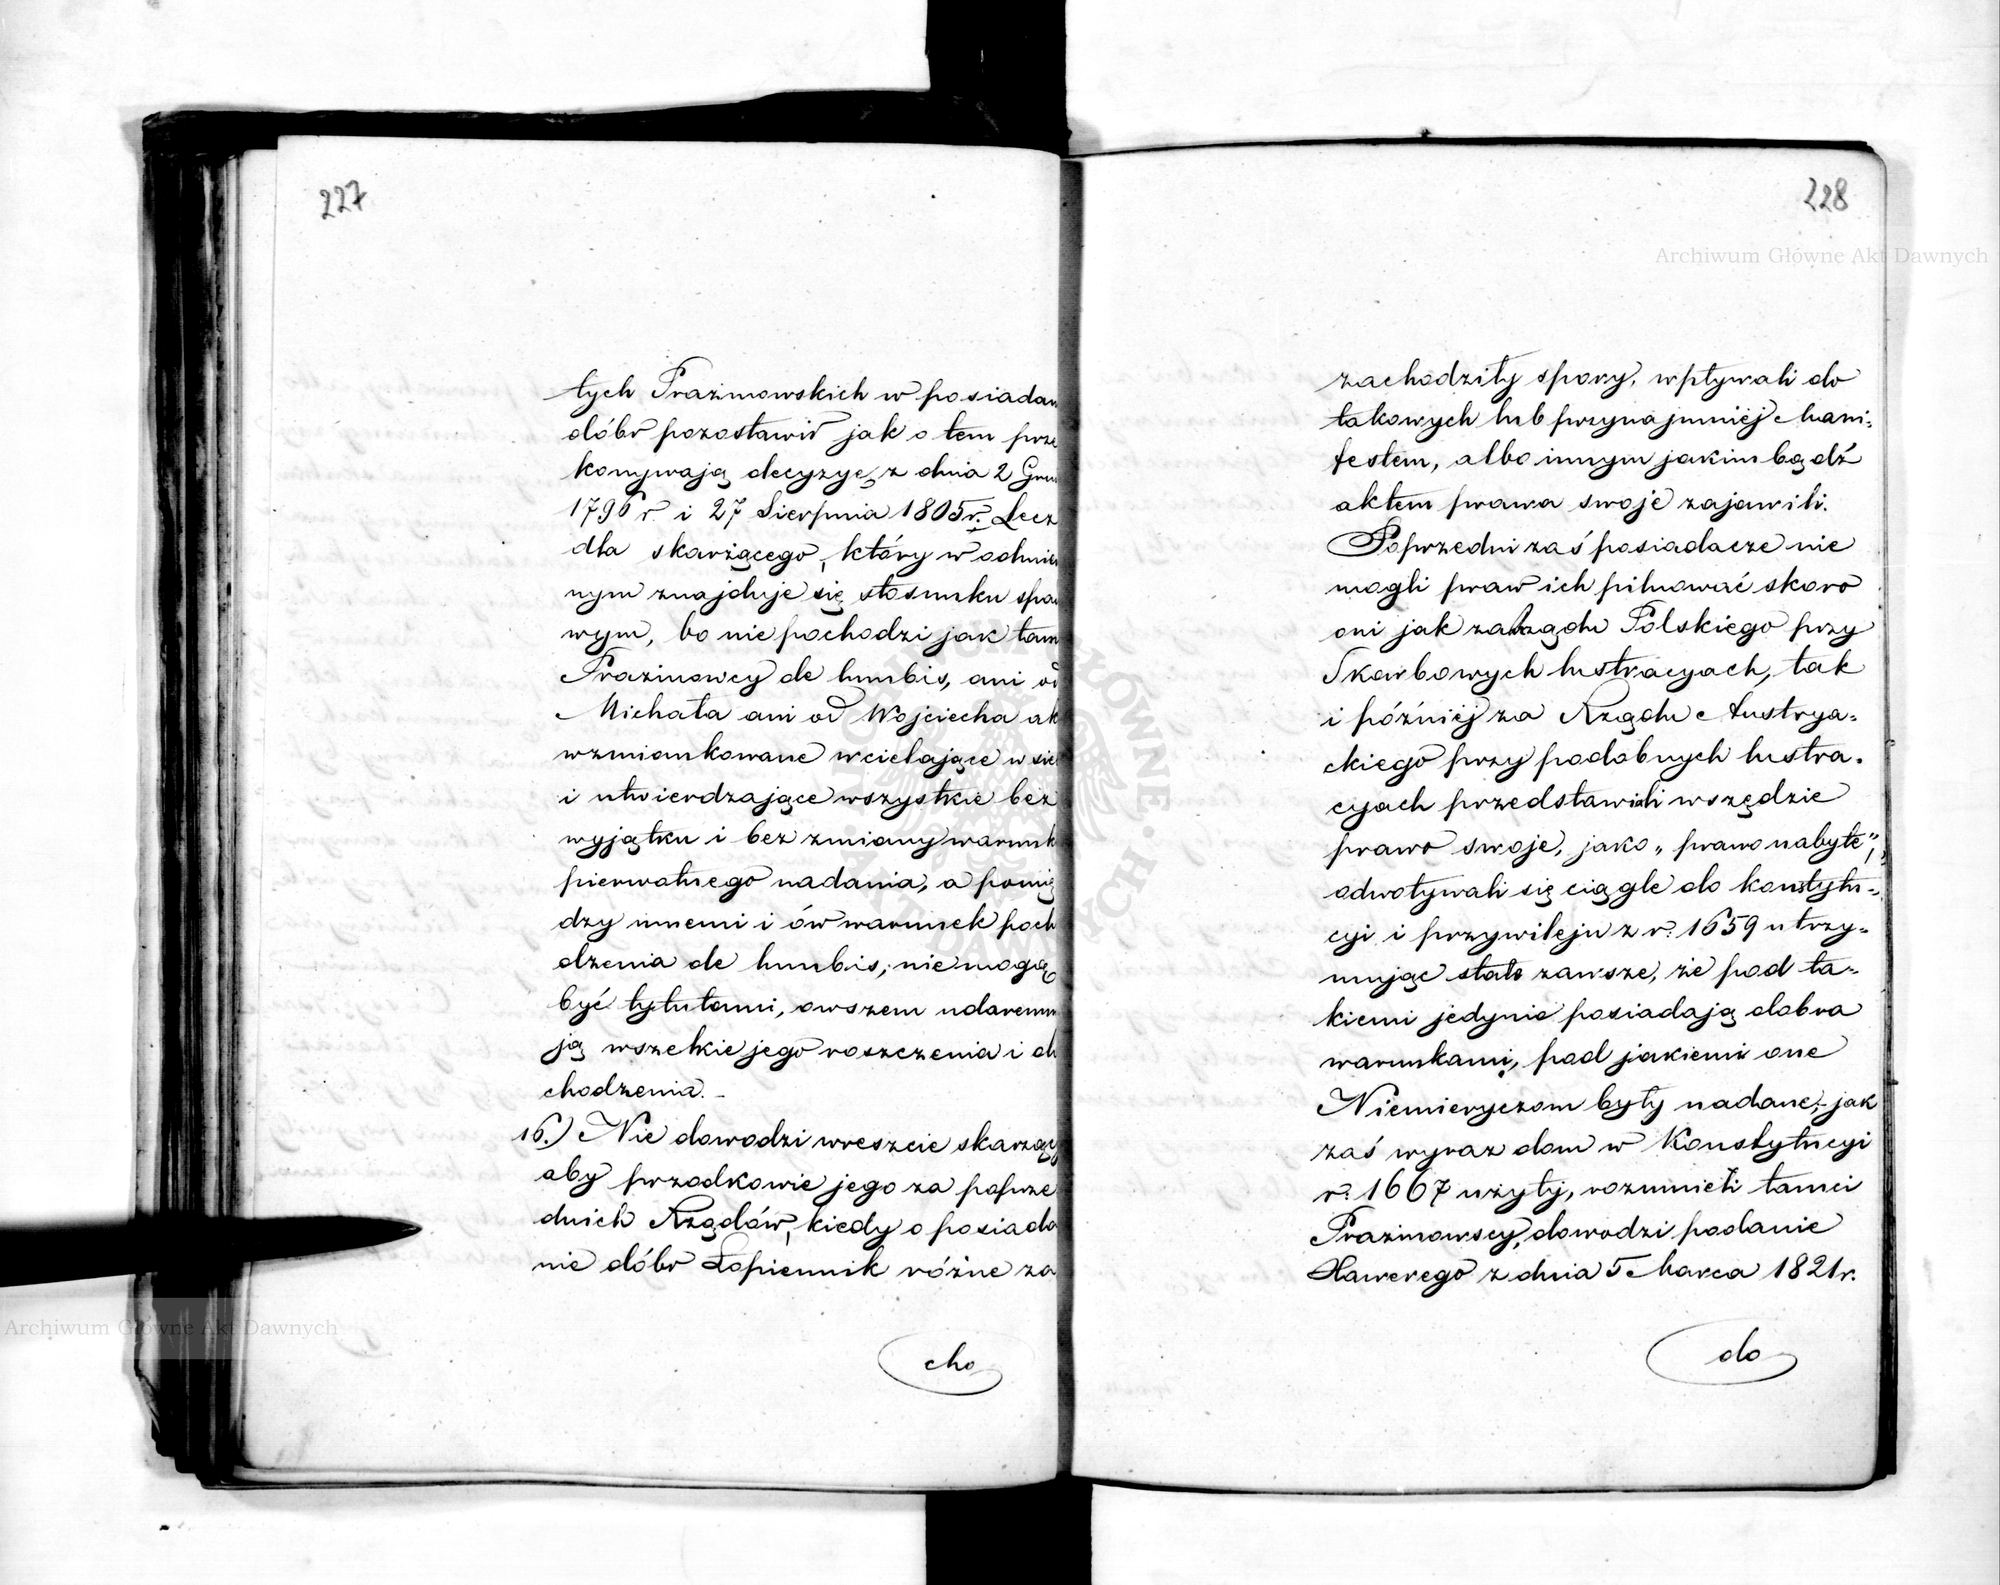 227
tych Prazmowskich w posiadan
dóbr pozostawił jak o tem prze
konywają decyzye z dnia 2 Gru
1796 r. i 27 Sierpnia 1805 r. Lecz
dla skarżącego, który w odmie
nym znajduje się stosunku spa
wym, bo nie pochodzi jak tam
Prazmowcy de lumbis, ani od
Michała ani od Wojciecha ak
wzmiankowane wcielające w sie
i utwierdzające wszystkie bez
wyjątku i bez zmiany warunk
pierwotnego nadania, a pomię
dzy innemi i ów warunek poch
dzenia de lumbis, nie mogą
być tytułami, owszem udaremn
ją wszelkie jego roszczenia i do
chodzenia. -
16.) Nie dowodzi wreszcie skarżący
aby przodkowie jego za poprze
dnich Rządów, kiedy o posiada
nie dóbr Łopiennik różne za
cho
228
zachodziły spory, wpływali do
takowych lub przynajmniéj Mani-
festem, albo innym jakim bądź
aktem prawa swoje zajawili.
Poprzedni zaś posiadacze nie
mogli praw ich pilnować skoro
oni jak za Rządu Polskiego przy
Skarbowych lustracyach, tak
i późniéj za Rządu Austrya-
ckiego przy podobnych lustra-
cyach przedstawiali wszędzie
prawo swoje, jako „prawo nabyte",
odwoływali się ciągle do konstytu-
cyi i przywileju z r. 1659 utrzy-
mując stale zawsze, że pod ta-
kiemi jedynie posiadają dobra
warunkami, pod jakiemi one
Niemieryczom były nadane; jak
zaś wyraz dom w Konstytucyi
r. 1667 użyty, rozumieli tamci
Prazmowscy, dowodzi podanie
Xawerego z dnia 5 Marca 1821 r.
do
Archiwum Główne Akt Dawnych
Archiwum Główne Akt Dawnych